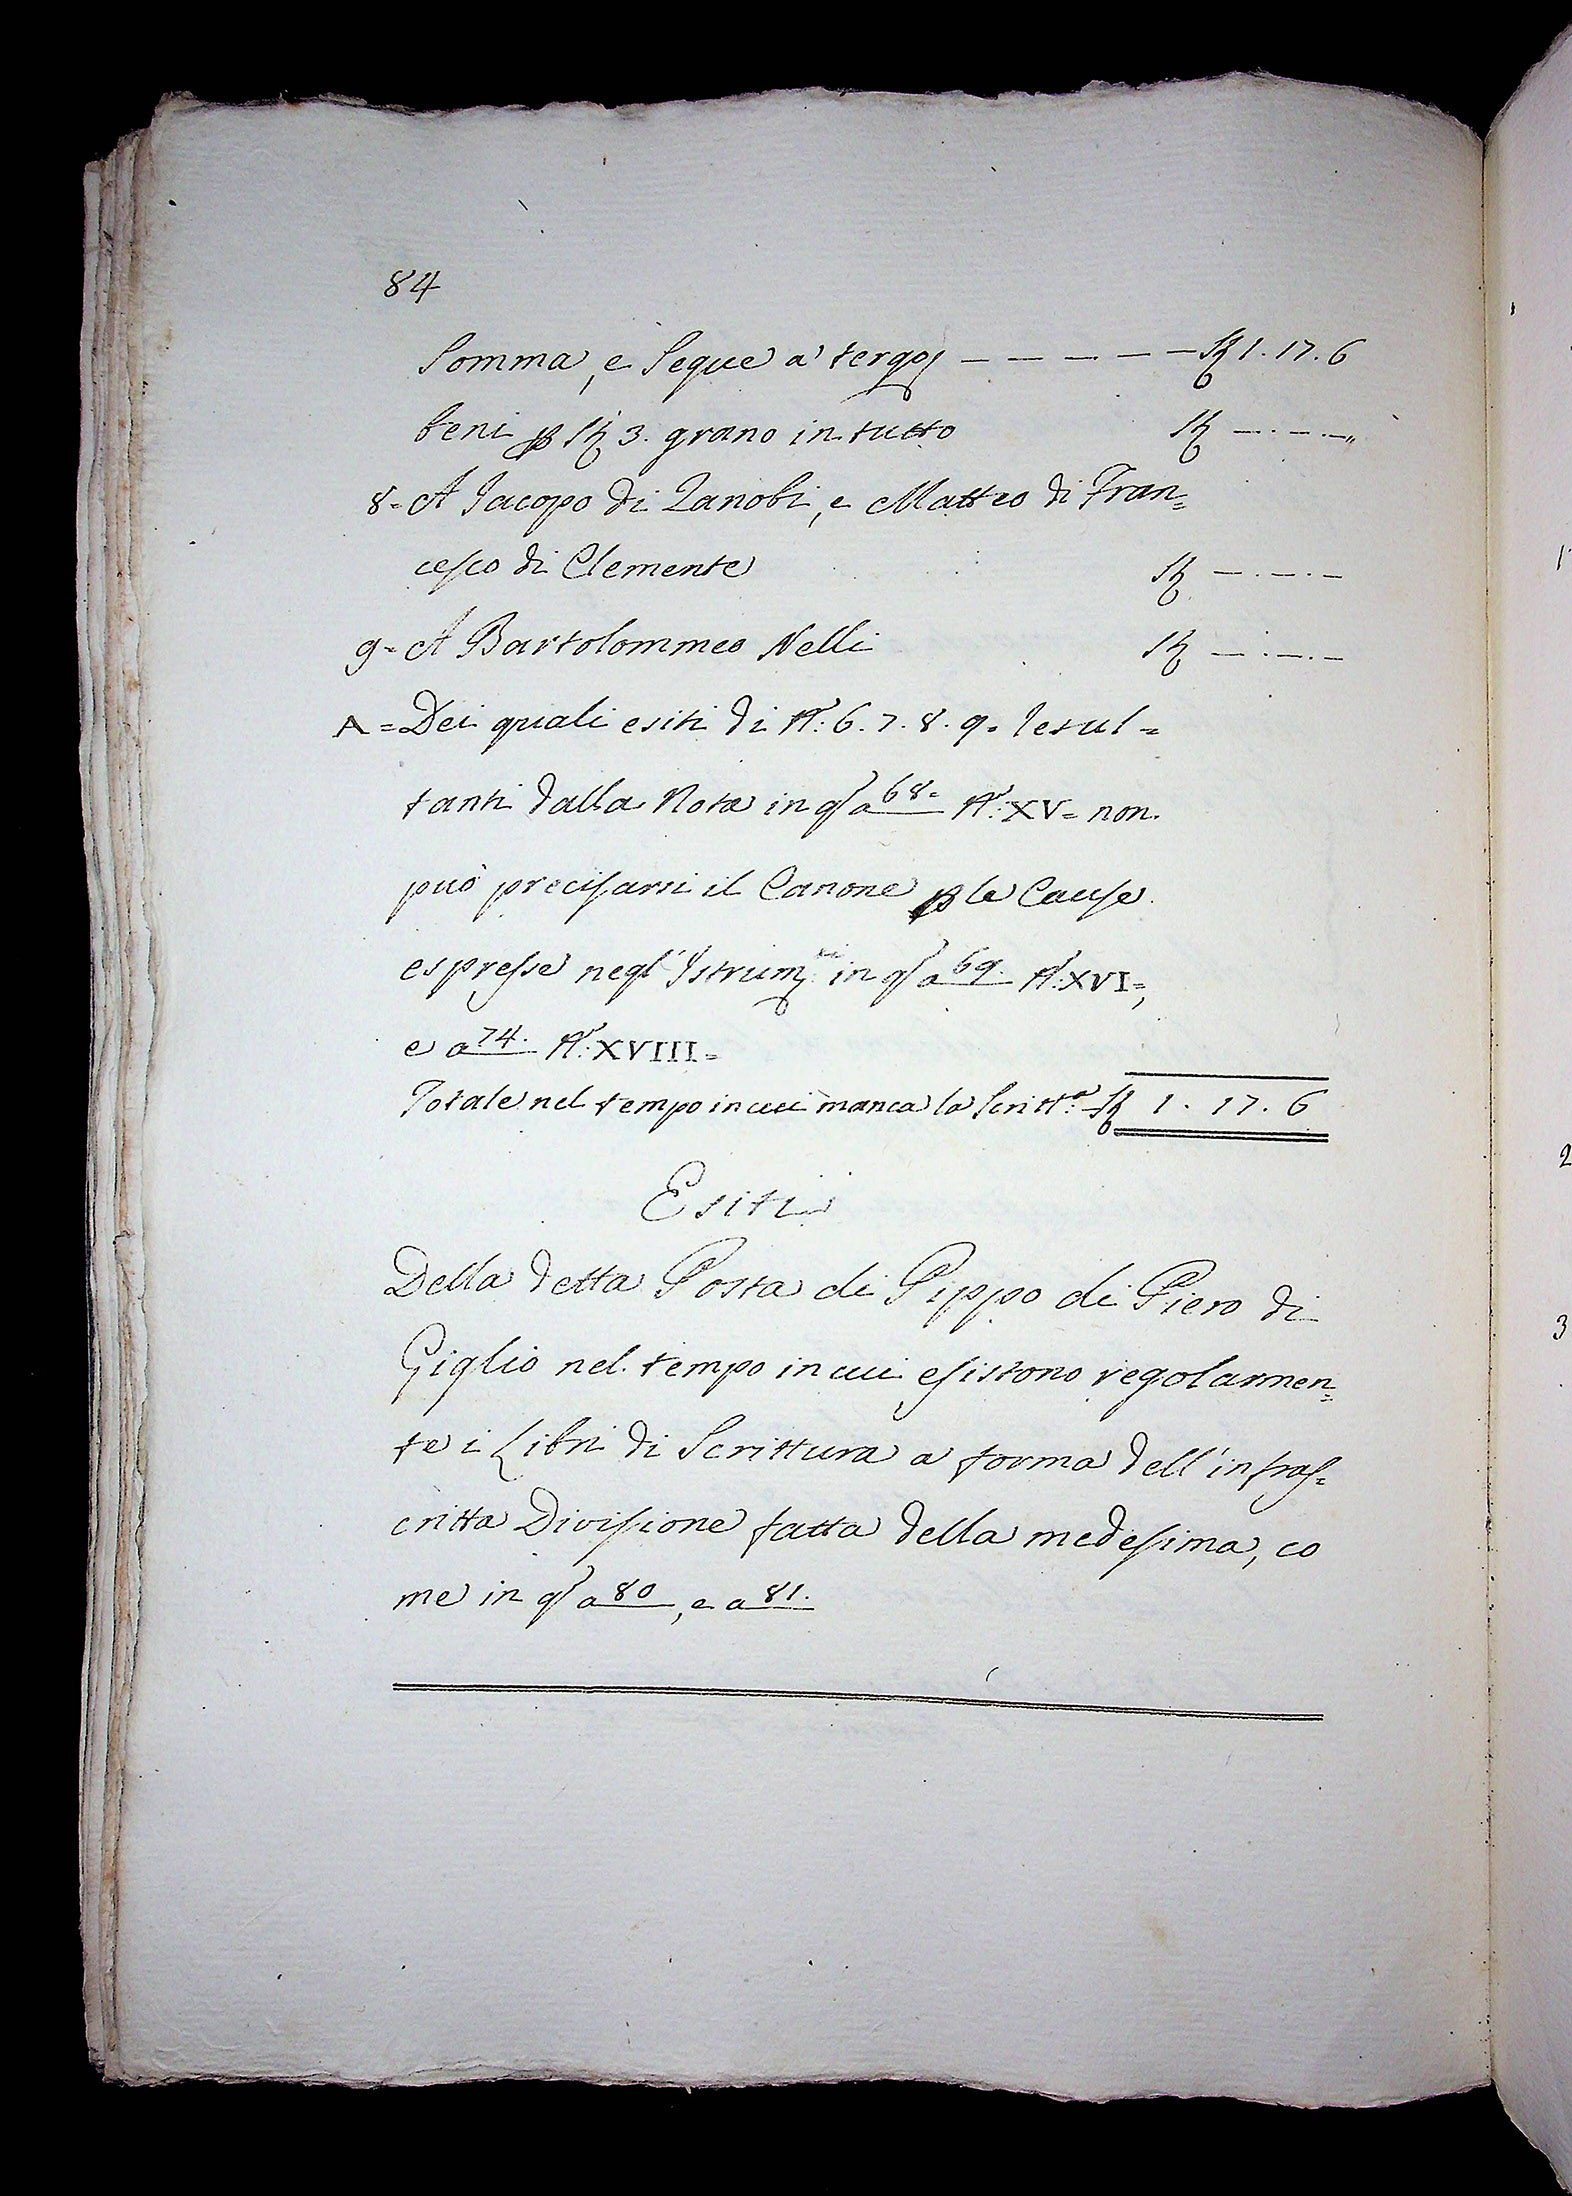 84
Somma, e Segue a' tergo — — — — — St 1. 17. 6
beni p St 3. grano in tutto St —.—.—„
8= A Jacopo di Zanobi, e Matteo di Fran=
cesco di Clemente St —.—.—
9= A Bartolommeo Nelli St —.—.—
A= Dei quali esiti di N.° 6. 7. 8. 9. resul=
tanti dalla Nota in q.º a 68= N.° XV= non
può precisarsi il Canone p le Cause
espresse negl' Istrum.ti in q.º a 69. N.° XVI=,
e a 74. N.° XVIII=
Totale nel tempo in cui manca la Scritt.ª St 1. 17. 6
Esiti
Della detta Posta di Pippo di Piero di
Giglio nel tempo in cui esistono regolarmen=
te i Libri di Scrittura a forma dell' infras=
critta Divisione fatta della medesima, co
me in q.º a 80, e a 81.
2
3